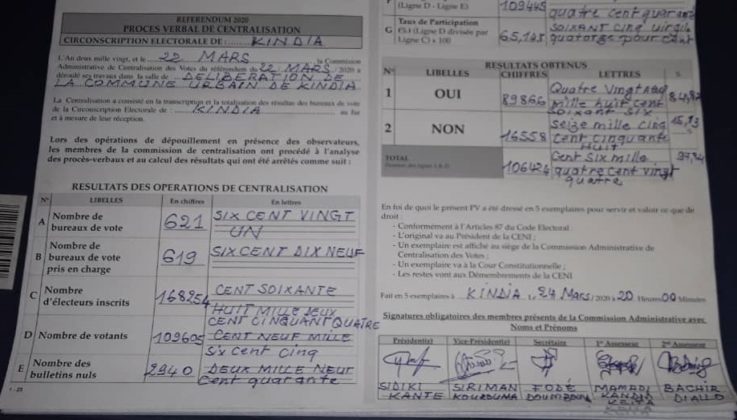 REFERENDUM 2020
PROCES VERBAL DE CENTRALISATION
CIRCONSCRIPTION ELECTORALE DE KINDIA
L'An deux mille vingt, et le 22 MARS la Commission
Administrative de Centralisation des Votes du référendum de 22 MARS 2020 a
déroulé ses travaux dans la salle de DELIBERATION DE
LA COMMUNE URBAIN DE KINDIA
La Centralisation a consisté en la transcription et la totalisation des résultats des bureaux de vote
de la Circonscription Electorale de KINDIA au fur
et à mesure de leur réception.
Lors des opérations de dépouillement en présence des observateurs,
les membres de la commission de centralisation ont procédé à l'analyse
des procès-verbaux et au calcul des résultats qui ont été arrêtés comme suit :
RESULTATS DES OPERATIONS DE CENTRALISATION
N° LIBELLES En chiffres En lettres
A Nombre de bureaux de vote 621 SIX CENT VINGT
UN
B Nombre de bureaux de vote pris en charge 619 SIX CENT DIX NEUF
C Nombre d'électeurs inscrits 168254 CENT SOIXANTE
HUIT MILLE DEUX
CENT CINQUANT QUATRE
D Nombre de votants 109605 CENT NEUF MILLE
Six cent cinq
E Nombre des bulletins nuls 2940 DEUX MILLE NEUF
Cent quarante
(Ligne D - Ligne E) 109445
quatre cent
G Taux de Participation
(%) (Ligne D divisée par
Ligne C) x 100 65,145 SOIXANT CINQ virgule
quatorze pour cent
RESULTATS OBTENUS
N° LIBELLES CHIFFRES LETTRES %
1 OUI 89866 Quatre Vingt
mille huit cent
soixant six
2 NON 16558 Seize mille cinq
cent cinquante
HUIT
TOTAL 106424 Cent six mille
quatre cent vingt
quatre
En foi de quoi le présent PV a été dressé en 5 exemplaires pour servir et valoir ce que de
droit
- Conformément à l'Articles 87 du Code Electoral.
- L'original va au Président de la CENI ;
- Un exemplaire est affiché au siège de la Commission Administrative de
Centralisation des Votes ;
- Un exemplaire va à la Cour Constitutionnelle ;
- Les restes vont aux Démembrements de la CENI.
Fait en 5 exemplaires à KINDIA, le 24 Mars 2020 à 20 Heures 00 Minutes
Signatures obligatoires des membres présents de la Commission Administrative avec
Noms et Prénoms
Président(e) Vice-Président(e) Secrétaire 1er Assesseur 2ème Assesseur
SIDIKI SIRIMAN FODÉ MAMADI BACHIR
KANTE KOUROUMA DOUMBOUYA KANDIA DIALLO
KEITA